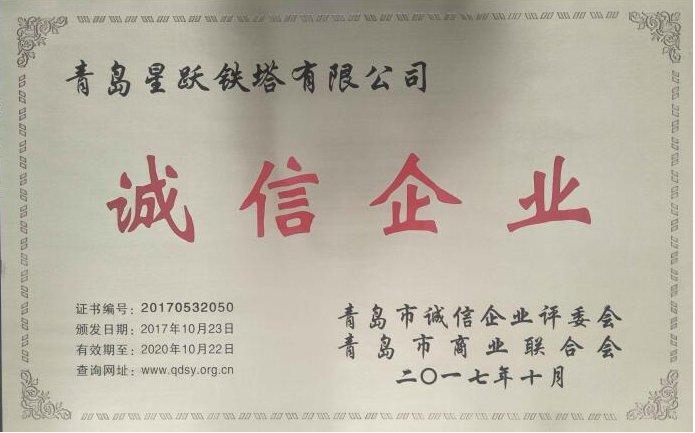 青岛星跃铁塔有限公司
诚信企业
证书编号：20170532050
颁发日期：2017年10月23日
有效期至：2020年10月22日
查询网址：www.qdsy.org.cn
青岛市诚信企业评委会
青岛市商业联合会
二〇一七年十月